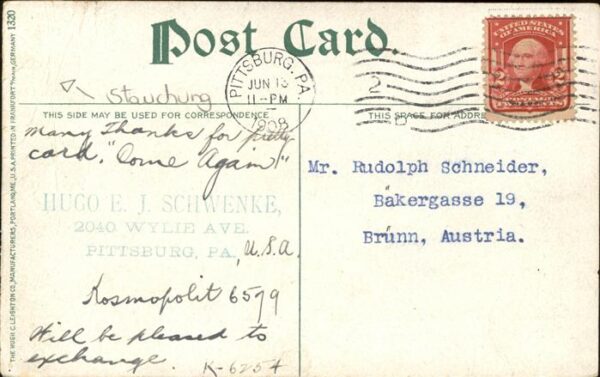 Post Card.
PITTSBURG, PA.
JUN 13
11-PM
1908
2
UNITED STATES
OF AMERICA
2 2
POSTAGE
Stauchung
THIS SIDE MAY BE USED FOR CORRESPONDENCE
THIS SPACE FOR ADDRE
many Thanks for pretty
card. "Come Again"
HUGO E. J. SCHWENKE,
2040 WYLIE AVE.
PITTSBURG, PA., U.S.A.
Kosmopolit 6579
Will be pleased to
exchange.
K-6254
Mr. Rudolph Schneider,
Bäkergasse 19,
Brünn, Austria.
THE HUGH C. LEIGHTON CO., MANUFACTURERS, PORTLAND, ME., U.S.A. PRINTED IN FRANKFORT GERMANY 1320